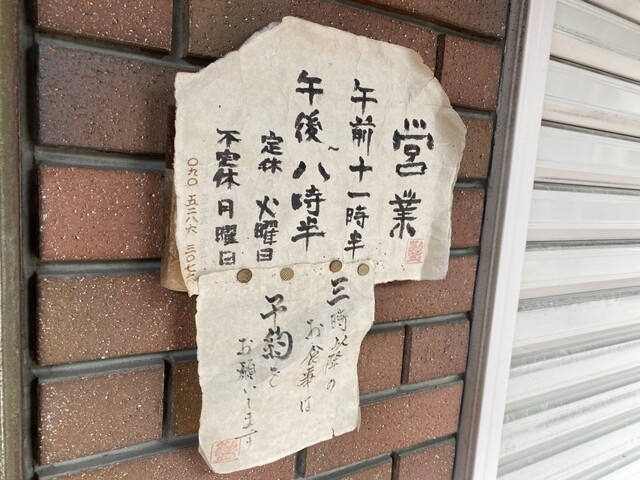 営業
午前十一時半
~
午後八時半
定休 火曜日
不定休 月曜日
〇九〇 五二八六 三〇七
三時以降の
お食事は
予約を
お願いします